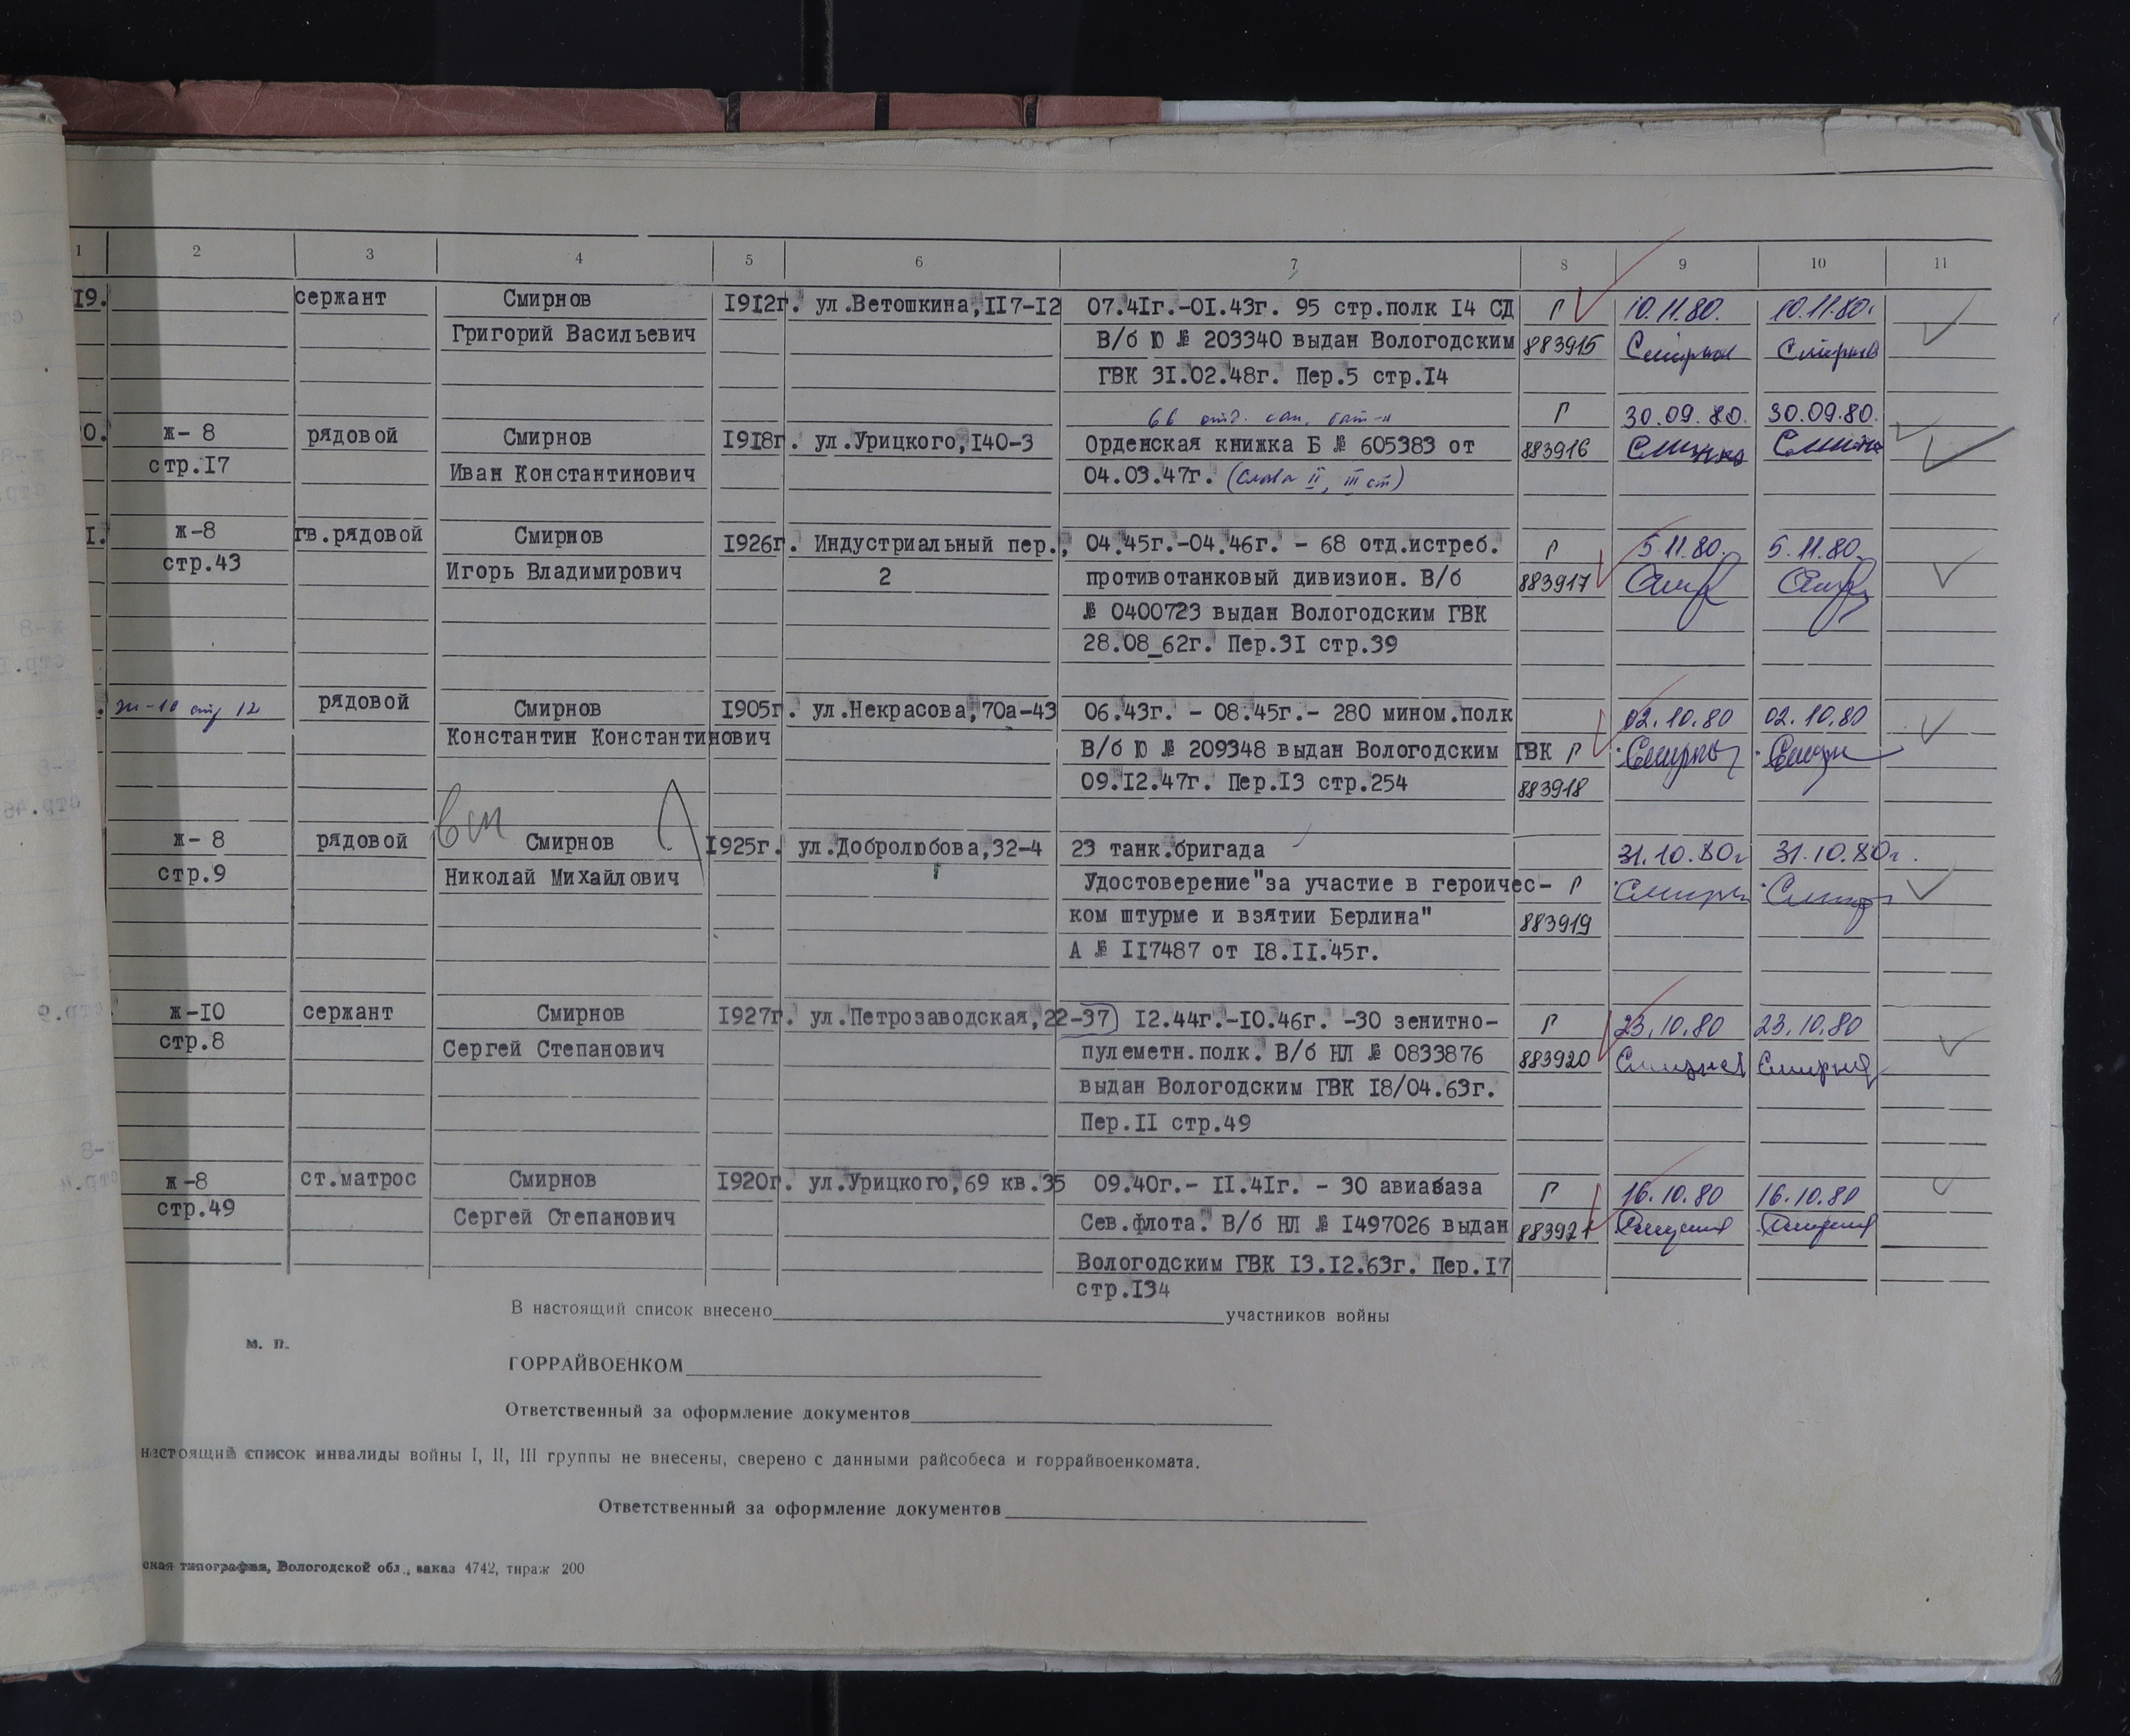 1 2 3 4 5 6 7 8 9 10 11
19. сержант Смирнов 1912г. ул.Ветошкина,117-12 07.41г.-01.43г. 95 стр.полк 14 СД Г 10.11.80. 10.11.80.
Григорий Васильевич В/б Ю № 203340 выдан Вологодским 883915 Смирнов Смирнов
ГВК 31.02.48г. Пер.5 стр.14
66 отд. сап. бат-н Г 30.09.80. 30.09.80.
0. ж- 8 рядовой Смирнов 1918г. ул.Урицкого,140-3 Орденская книжка Б № 605383 от 883916
стр.17 Иван Константинович 04.03.47г. (Слава II, III ст)
1. ж-8 гв.рядовой Смирнов 1926г. Индустриальный пер., 04.45г.-04.46г. - 68 отд.истреб. Г 5.11.80. 5.11.80.
стр.43 Игорь Владимирович 2 противотанковый дивизион. В/б 883917
№ 0400723 выдан Вологодским ГВК
28.08_62г. Пер.31 стр.39
. ж-10 стр 12 рядовой Смирнов 1905г. ул.Некрасова,70а-43 06.43г. - 08.45г.- 280 мином.полк 02.10.80 02.10.80
Константин Константинович В/б Ю № 209348 выдан Вологодским ГВК Г
09.12.47г. Пер.13 стр.254 883918
ж- 8 рядовой Смирнов 1925г. ул.Добролюбова,32-4 23 танк.бригада 31.10.80г 31.10.80г.
стр.9 Николай Михайлович Удостоверение"за участие в героичес- Г
ком штурме и взятии Берлина" 883919
А № 117487 от 18.11.45г.
ж-10 сержант Смирнов 1927г. ул.Петрозаводская,22-37) 12.44г.-10.46г. -30 зенитно- Г 23.10.80 23.10.80
стр.8 Сергей Степанович пулеметн.полк. В/б НЛ № 0833876 883920
выдан Вологодским ГВК 18/04.63г.
Пер.11 стр.49
ж-8 ст.матрос Смирнов 1920г. ул.Урицкого,69 кв.35 09.40г.- 11.41г. - 30 авиабаза Г 16.10.80 16.10.80
стр.49 Сергей Степанович Сев.флота. В/б НЛ № 1497026 выдан 883921
Вологодским ГВК 13.12.63г. Пер.17
стр.134
В настоящий список внесено участников войны
м. п.
ГОРРАЙВОЕНКОМ
Ответственный за оформление документов
настоящий список инвалиды войны I, II, III группы не внесены, сверено с данными райсобеса и горрайвоенкомата.
Ответственный за оформление документов
ская типография, Вологодской обл., заказ 4742, тираж 200